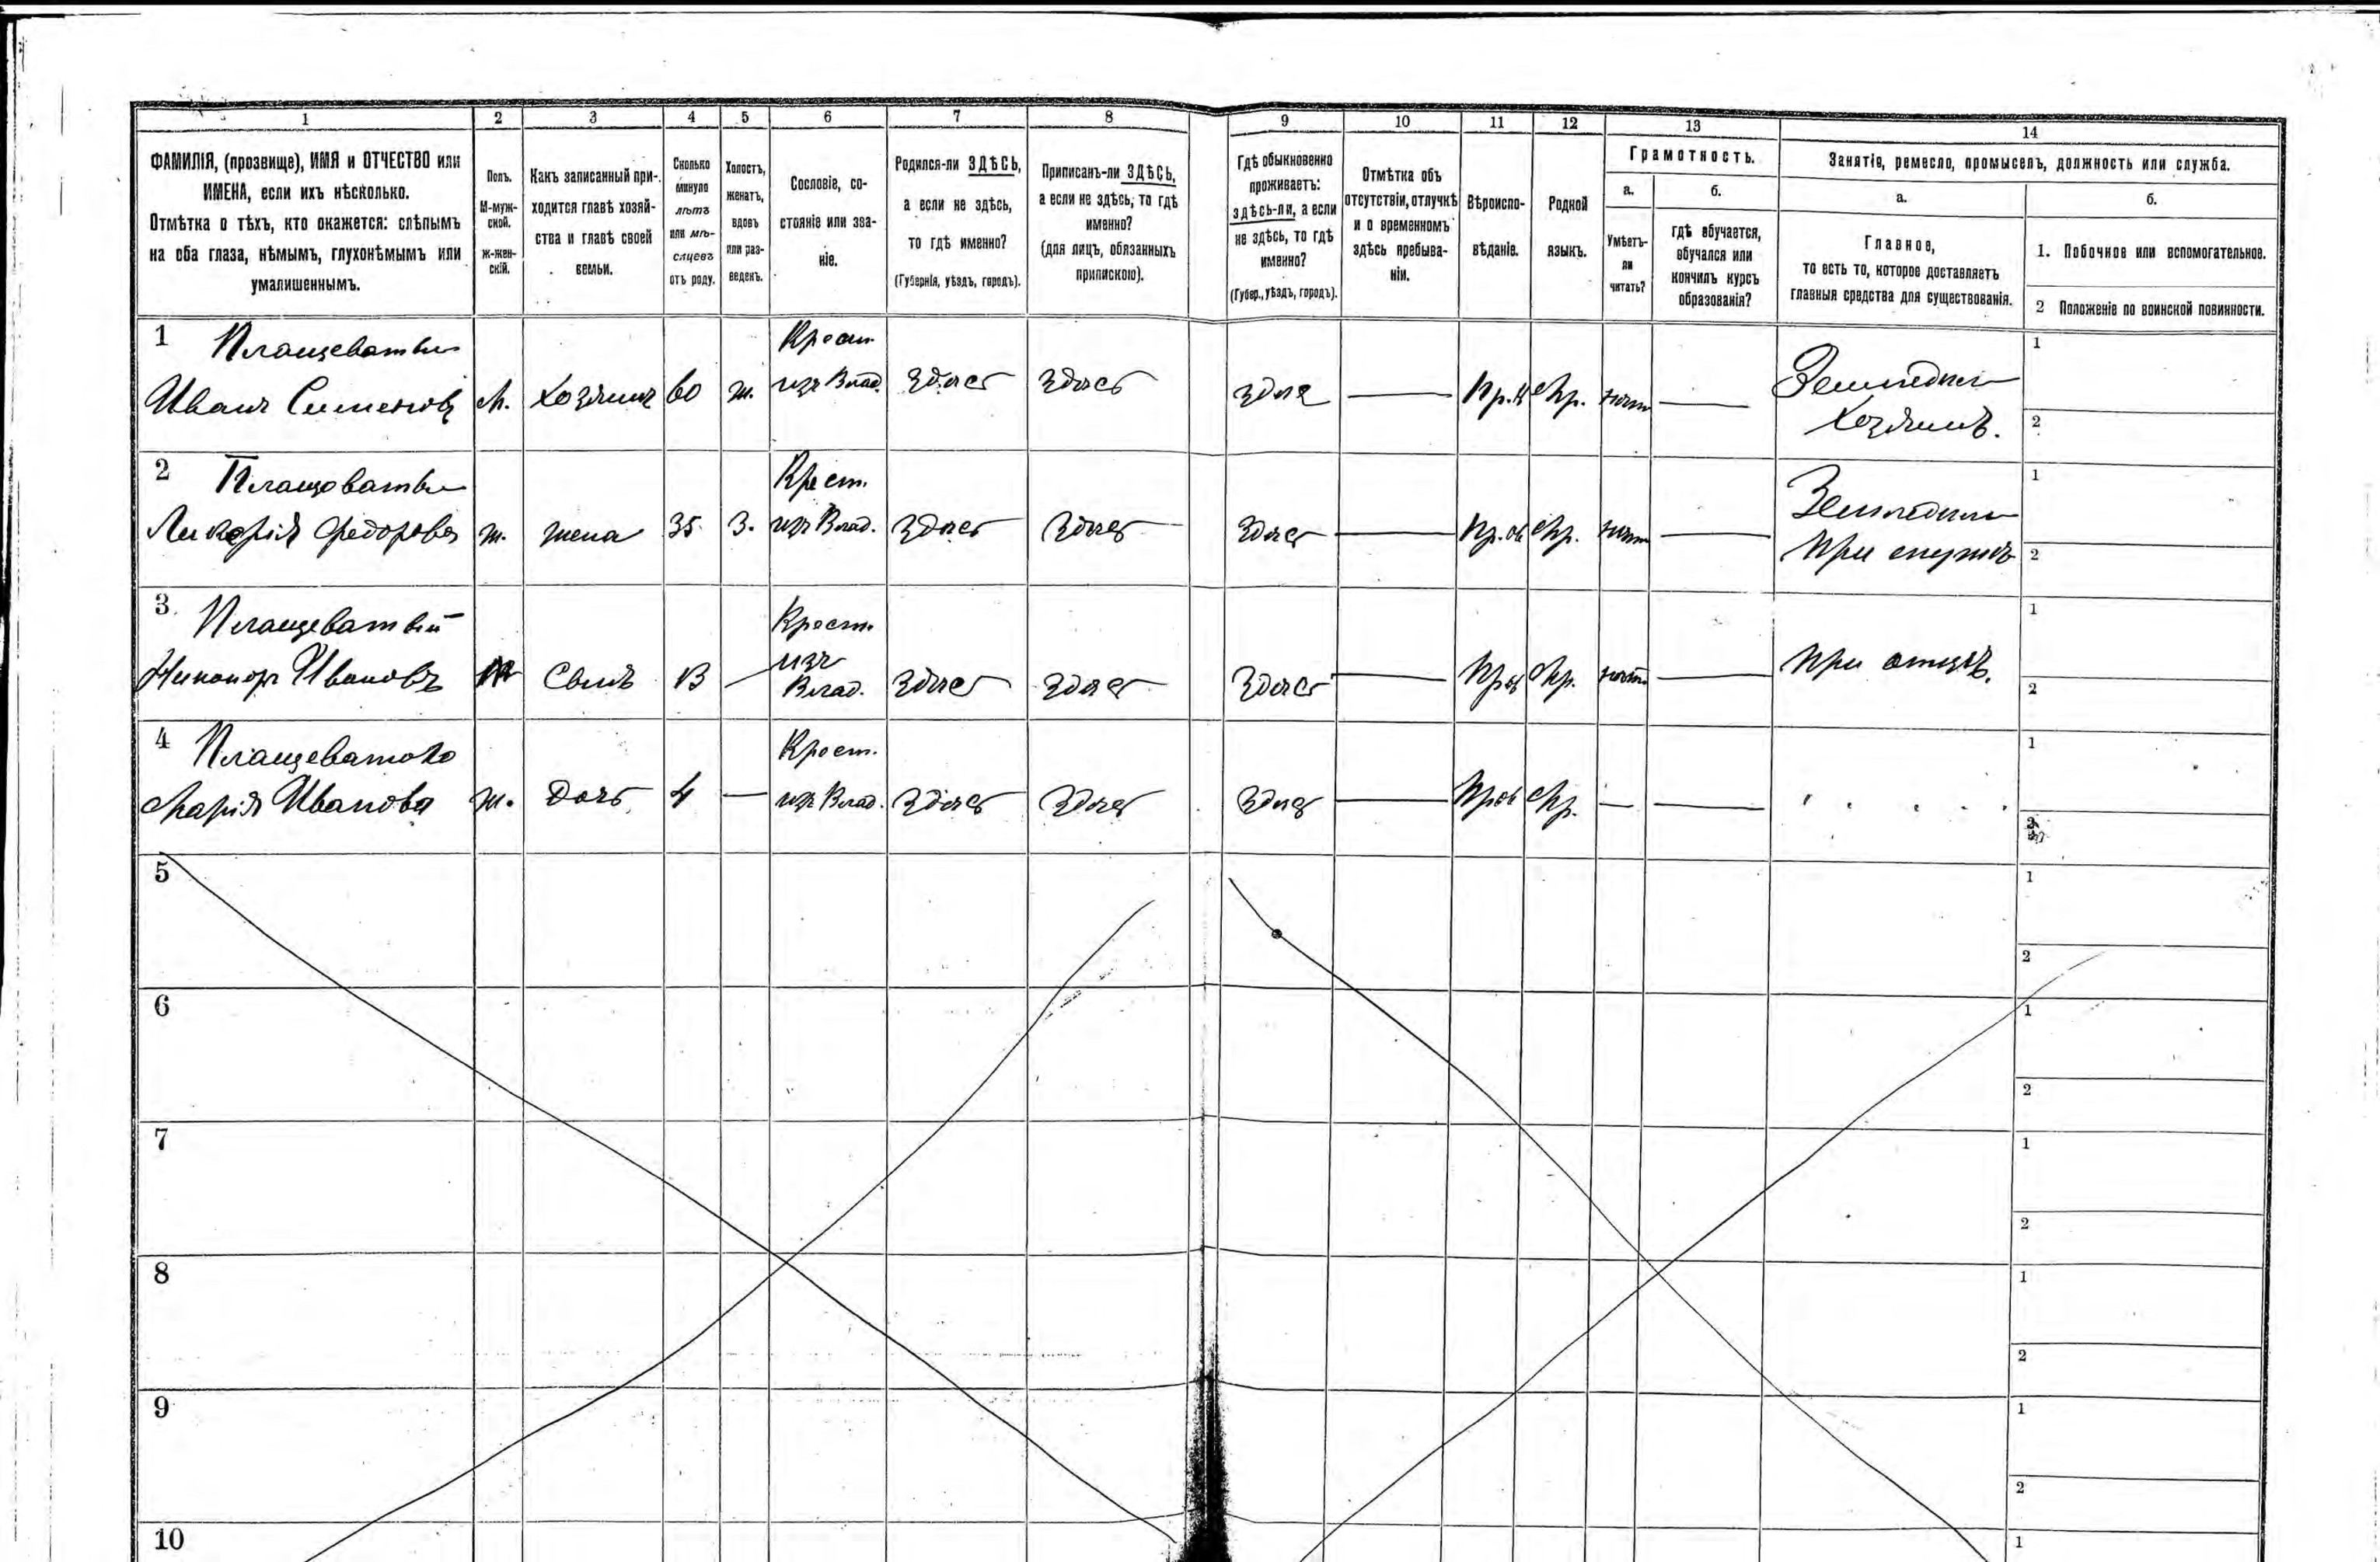 1 2 3 4 5 6 7 8 9 10 11 12 13 14
ФАМИЛІЯ, (прозвище), ИМЯ и ОТЧЕСТВО или
ИМЕНА, если ихъ нѣсколько.
Отмѣтка о тѣхъ, кто окажется: слѣпымъ
на оба глаза, нѣмымъ, глухонѣмымъ или
умалишеннымъ.
Полъ.
М-муж-
ской.
Ж-жен-
скій.
Какъ записанный при-
ходится главѣ хозяй-
ства и главѣ своей
семьи.
Сколько
минуло
лѣтъ
или мѣ-
сяцевъ
отъ роду.
Холостъ,
женатъ,
вдовъ
или раз-
веденъ.
Сословіе, со-
стояніе или зва-
ніе.
Родился-ли ЗДѢСЬ,
а если не здѣсь,
то гдѣ именно?
(Губернія, уѣздъ, городъ).
Приписанъ-ли ЗДѢСЬ,
а если не здѣсь, то гдѣ
именно?
(для лицъ, обязанныхъ
припискою).
Гдѣ обыкновенно
проживаетъ:
здѣсь-ли, а если
не здѣсь, то гдѣ
именно?
(Губер., уѣздъ, городъ).
Отмѣтка объ
отсутствіи, отлучкѣ
и о временномъ
здѣсь пребыва-
ніи.
Вѣроиспо-
вѣданіе.
Родной
языкъ.
Грамотность.
а.
Умѣетъ-
ли
читать?
б.
гдѣ обучается,
обучался или
кончилъ курсъ
образованія?
Занятіе, ремесло, промыселъ, должность или служба.
а.
Главное,
то есть то, которое доставляетъ
главныя средства для существованія.
б.
1. Побочное или вспомогательное.
2 Положеніе по воинской повинности.
1 Плащеваты Крест. 1
Иванъ Сименовъ М. Хозяинъ 60 ж. изъ Влад. Здѣсь Здѣсь Здѣсь — Пр. Мр. нѣтъ — Земледел
Хозяинъ. 2
2 Плащоваты Крест. 1
Лукерія Федорова ж. жена 35 З. изъ Влад. Здѣсь Здѣсь Здѣсь — Пр. ов Мр. нѣтъ — Земледел
При мужѣ 2
3. Плащеватый Крест. 1
Никоноръ Ивановъ М Сынъ 13 — изъ Влад. Здѣсь Здѣсь Здѣсь — Пров Мр. нѣтъ — При отцѣ. 2
4 Плащевато Крест. 1
Марія Иванова ж. Дочь 4 — изъ Влад. Здѣсь Здѣсь Здѣсь — Пров Мр. — — " " " " 2
5 1
2
6 1
2
7 1
2
8 1
2
9 1
2
10 1